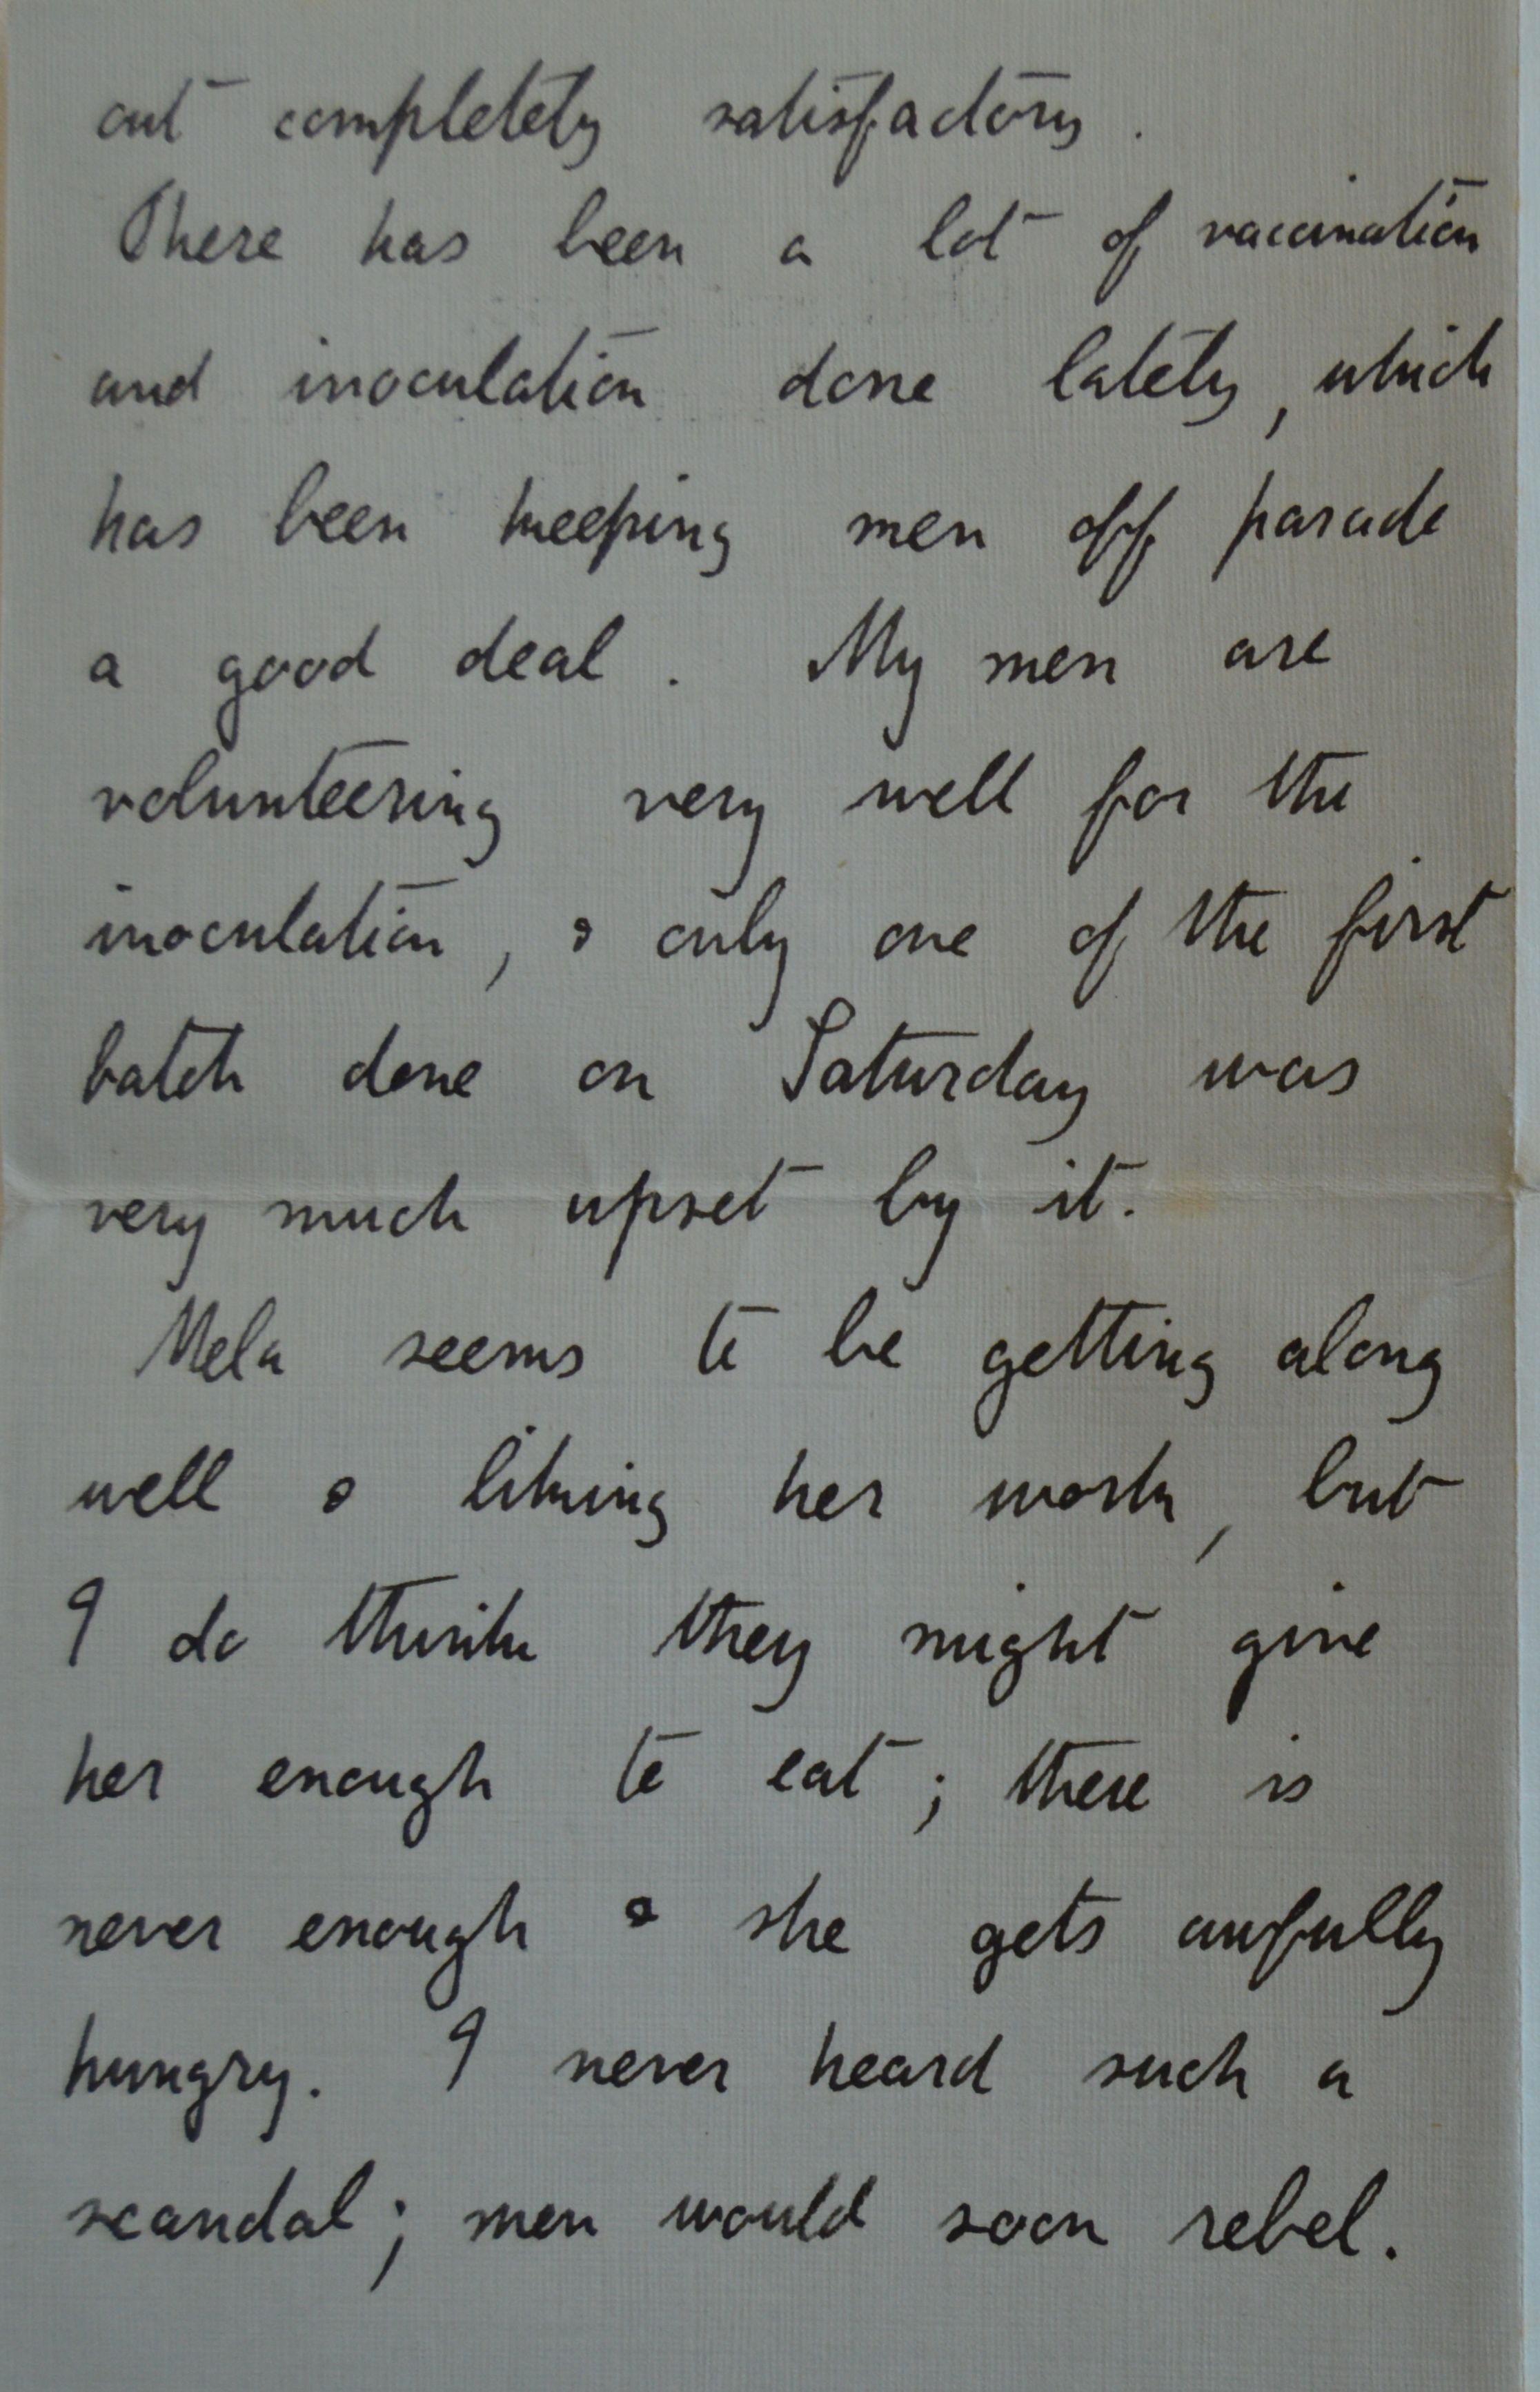 out completely satisfactory.
There has been a lot of vaccination
and inoculation done lately, which
has been keeping men off parade
a good deal. My men are
volunteering very well for the
inoculation, & only one of the first
batch done on Saturday was
very much upset by it.
Mela seems to be getting along
well & liking her work, but
I do think they might give
her enough to eat; there is
never enough & she gets awfully
hungry. I never heard such a
scandal; men would soon rebel.